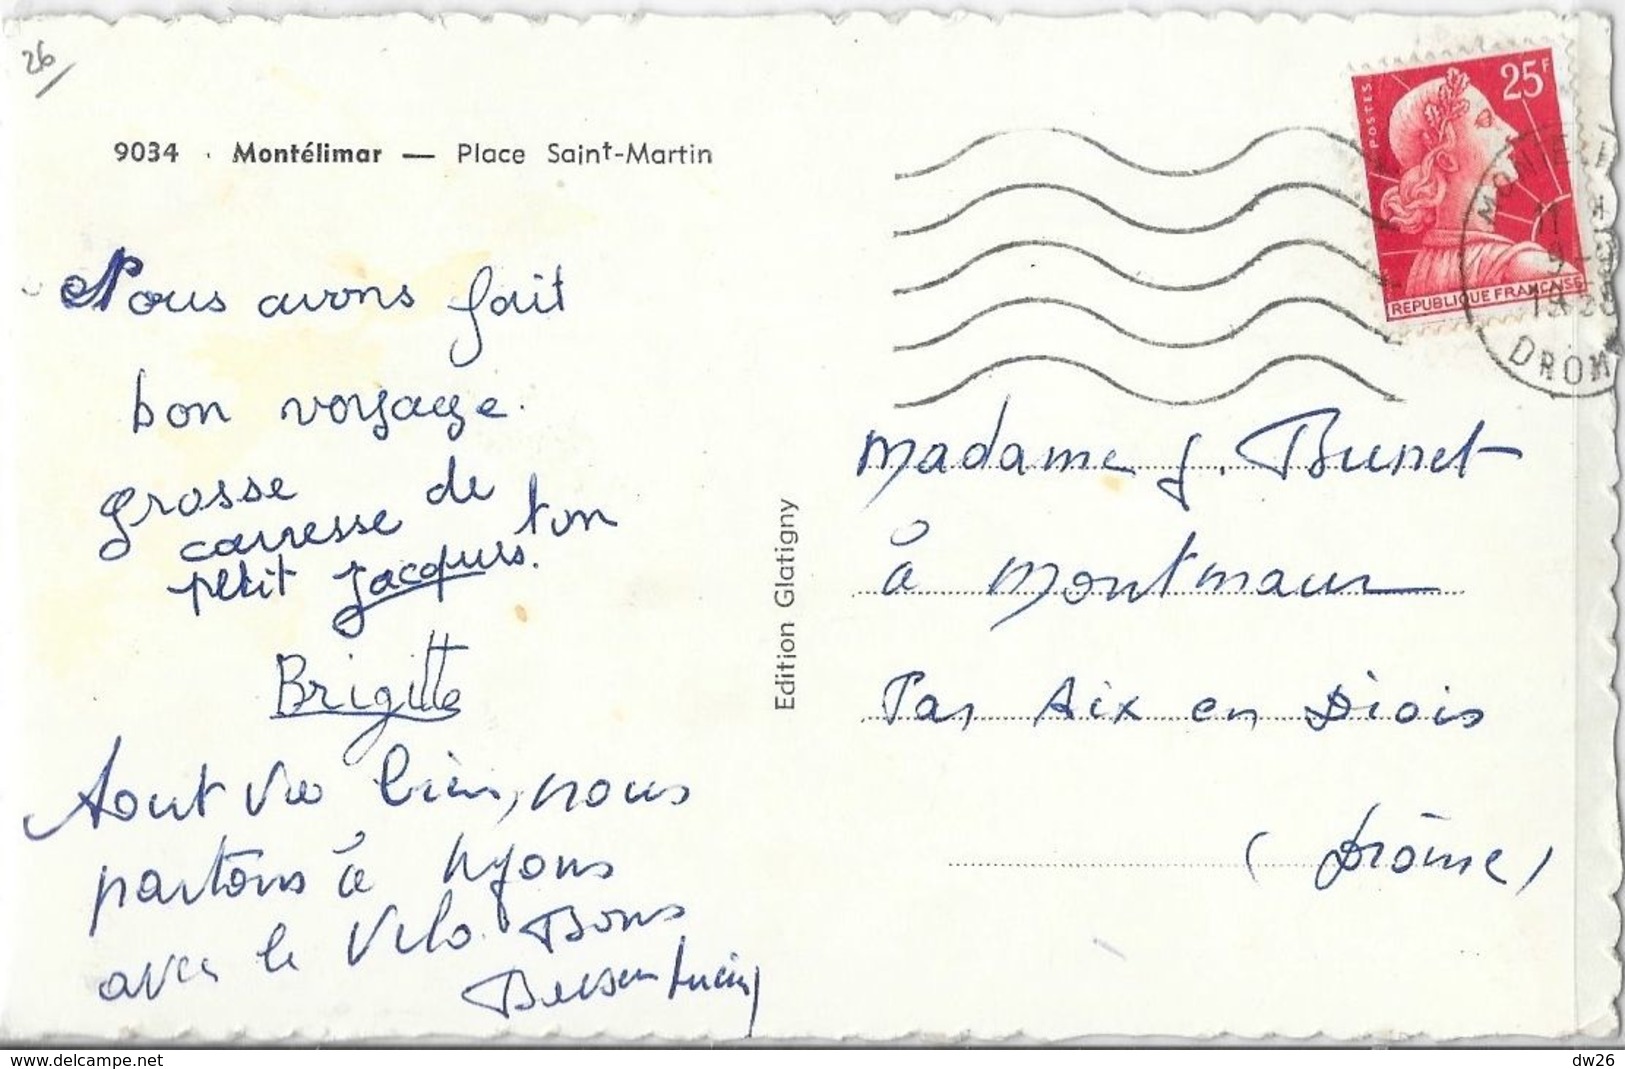 26
9034 . Montélimar — Place Saint-Martin
Nous avons fait
bon voyage.
grosse de
carresse ton
petit Jacques.
Brigitte
Tout va bien, nous
partons à Nyons
avec le Vélo. Bons
Baisers Lucien
Edition Glatigny
POSTES
25F
REPUBLIQUE FRANÇAISE
MONTELI
11 H
9 -
19 20
DROM
Madame J. Brunet
à Montmaur
Par Aix en Diois
(Drôme)
www.delcampe.net
dw26